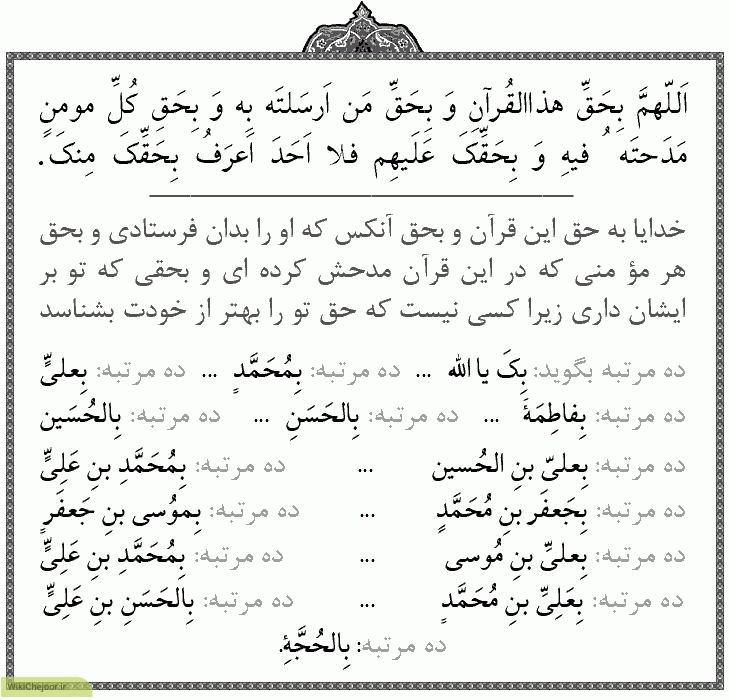 اَللّهمَّ بِحَقِّ هذاالقُرآنِ وَ بِحَقِّ مَن اَرسَلتَه بِه وَ بِحَقِ کُلِّ مومنٍ
مَدَحتَه ُ فیهِ وَ بِحَقِّکَ عَلَیهِم فلا اَحَدَ اَعرَفُ بِحَقِّکَ مِنکَ.
خدایا به حق این قرآن و بحق آنکس که او را بدان فرستادی و بحق
هر مؤ منی که در این قرآن مدحش کرده ای و بحقی که تو بر
ایشان داری زیرا کسی نیست که حق تو را بهتر از خودت بشناسد
ده مرتبه بگوید: بِکَ یا الله ... ده مرتبه: بِمُحَمَّدٍ ... ده مرتبه: بِعلیٍّ
ده مرتبه: بِفاطِمَةَ ... ده مرتبه: بِالحَسَنِ ... ده مرتبه: بِالحُسَین
ده مرتبه: بِعلیّ بنِ الحُسین ... ده مرتبه: بِمُحَمَّدِ بنِ عَلِیٍّ
ده مرتبه: بِجَعفَر بنِ مُحَمَّدٍ ... ده مرتبه: بِموُسی بنِ جَعفَرٍ
ده مرتبه: بِعلیِّ بنِ مُوسی ... ده مرتبه: بِمُحَمَّدِ بنِ عَلِیٍّ
ده مرتبه: بِعَلِیِّ بنِ مُحَمَّدٍ ... ده مرتبه: بِالحَسَنِ بنِ عَلِیٍّ
ده مرتبه: بِالحُجَّةِ.
WikiChejoor.ir